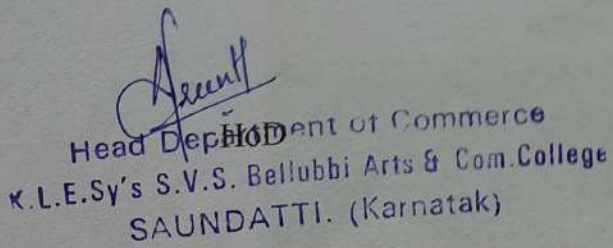 HOD
Head Department of Commerce
K.L.E.Sy's S.V.S. Bellubbi Arts & Com.College
SAUNDATTI. (Karnatak)